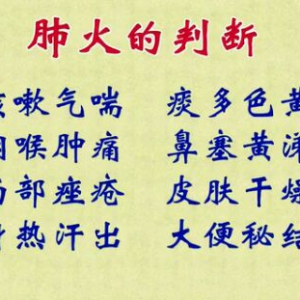 肺火的判断
咳嗽气喘 痰多色黄
咽喉肿痛 鼻塞黄涕
部痤疮 皮肤干燥
身热汗出 大便秘结